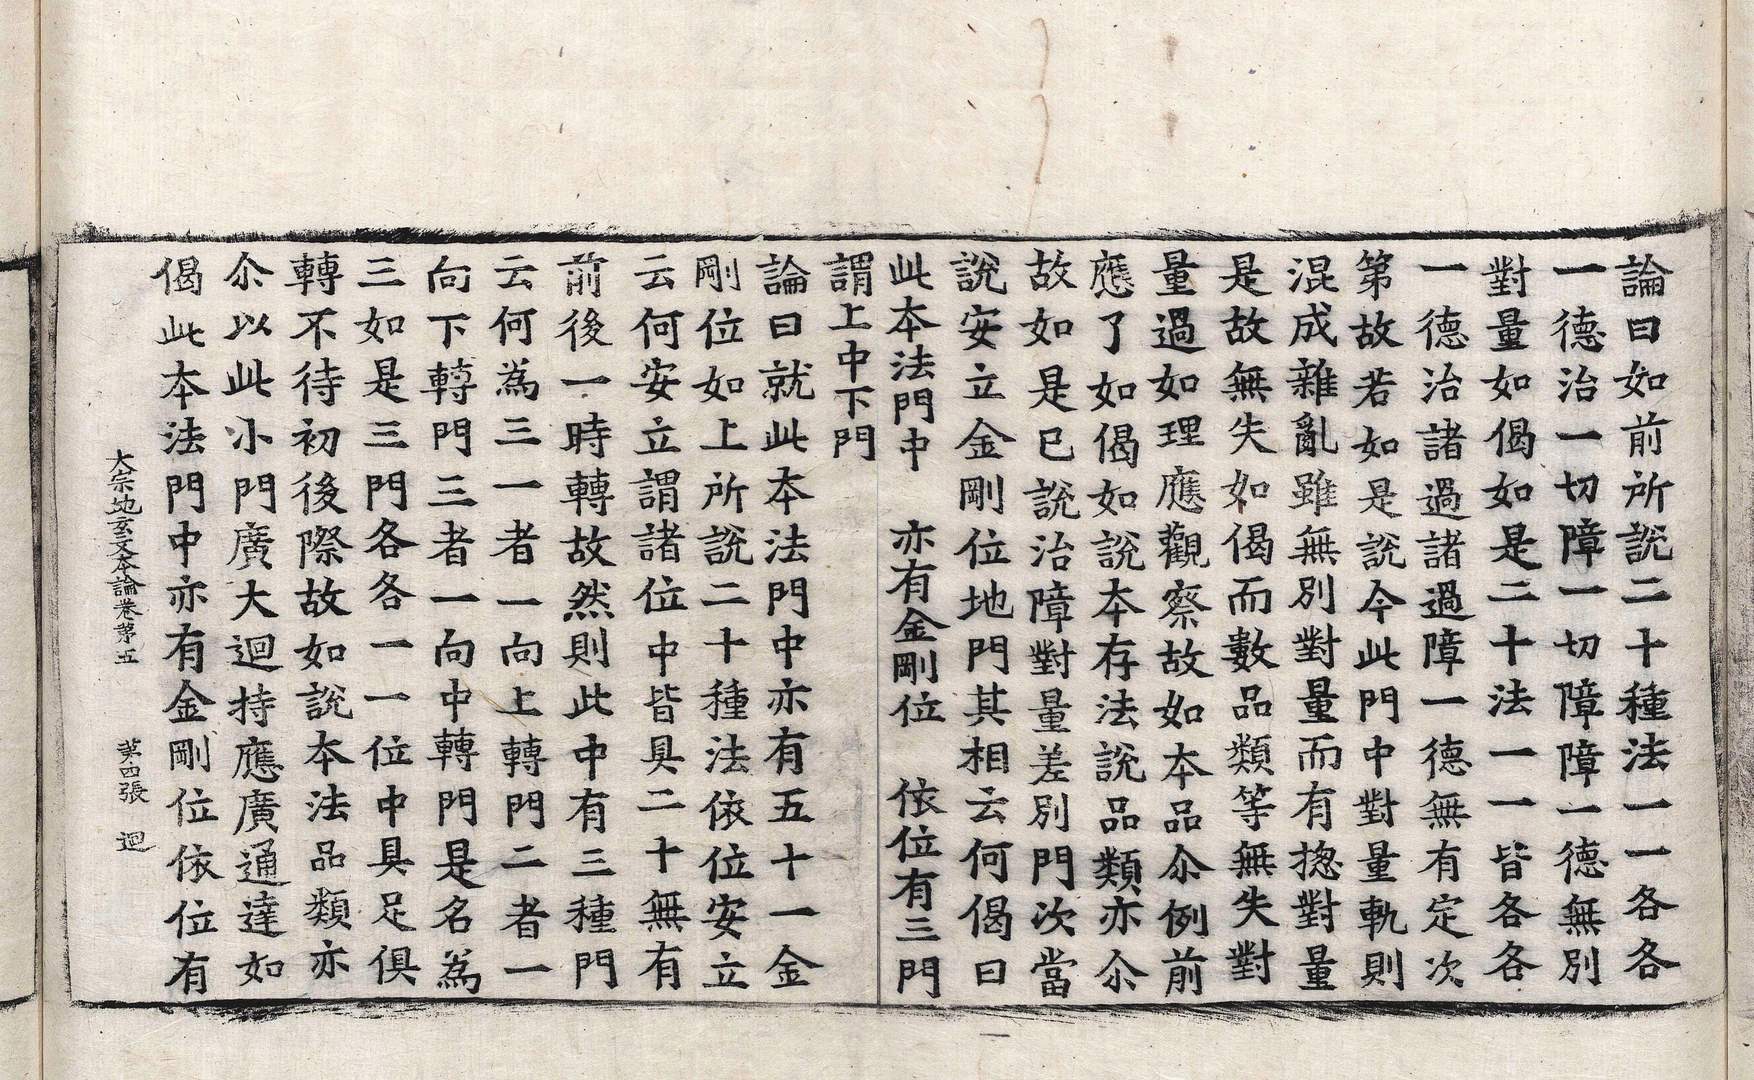 論曰如前所說二十種法一一各各
一德治一切障一切障障一德無別
對量如偈如是二十法一一皆各各
一德治諸過諸過障一德無有定次
第故若如是說今此門中對量軌則
混成雜亂雖無別對量而有揔對量
是故無失如偈而數品類等無失對
量過如理應觀察故如本品尒例前
應了如偈如說本存法說品類亦尒
故如是已說治障對量差別門次當
說安立金剛位地門其相云何偈曰
此本法門中　亦有金剛位　依位有三門
謂上中下門
論曰就此本法門中亦有五十一金
剛位如上所說二十種法依位安立
云何安立謂諸位中皆具二十無有
前後一時轉故然則此中有三種門
云何為三一者一向上轉門二者一
向下轉門三者一向中轉門是名為
三如是三門各各一一位中具足俱
轉不待初後際故如說本法品類亦
尒以此小門廣大迴持應廣通達如
偈此本法門中亦有金剛位依位有
大宗地玄文本論卷苐五　苐四張　迴